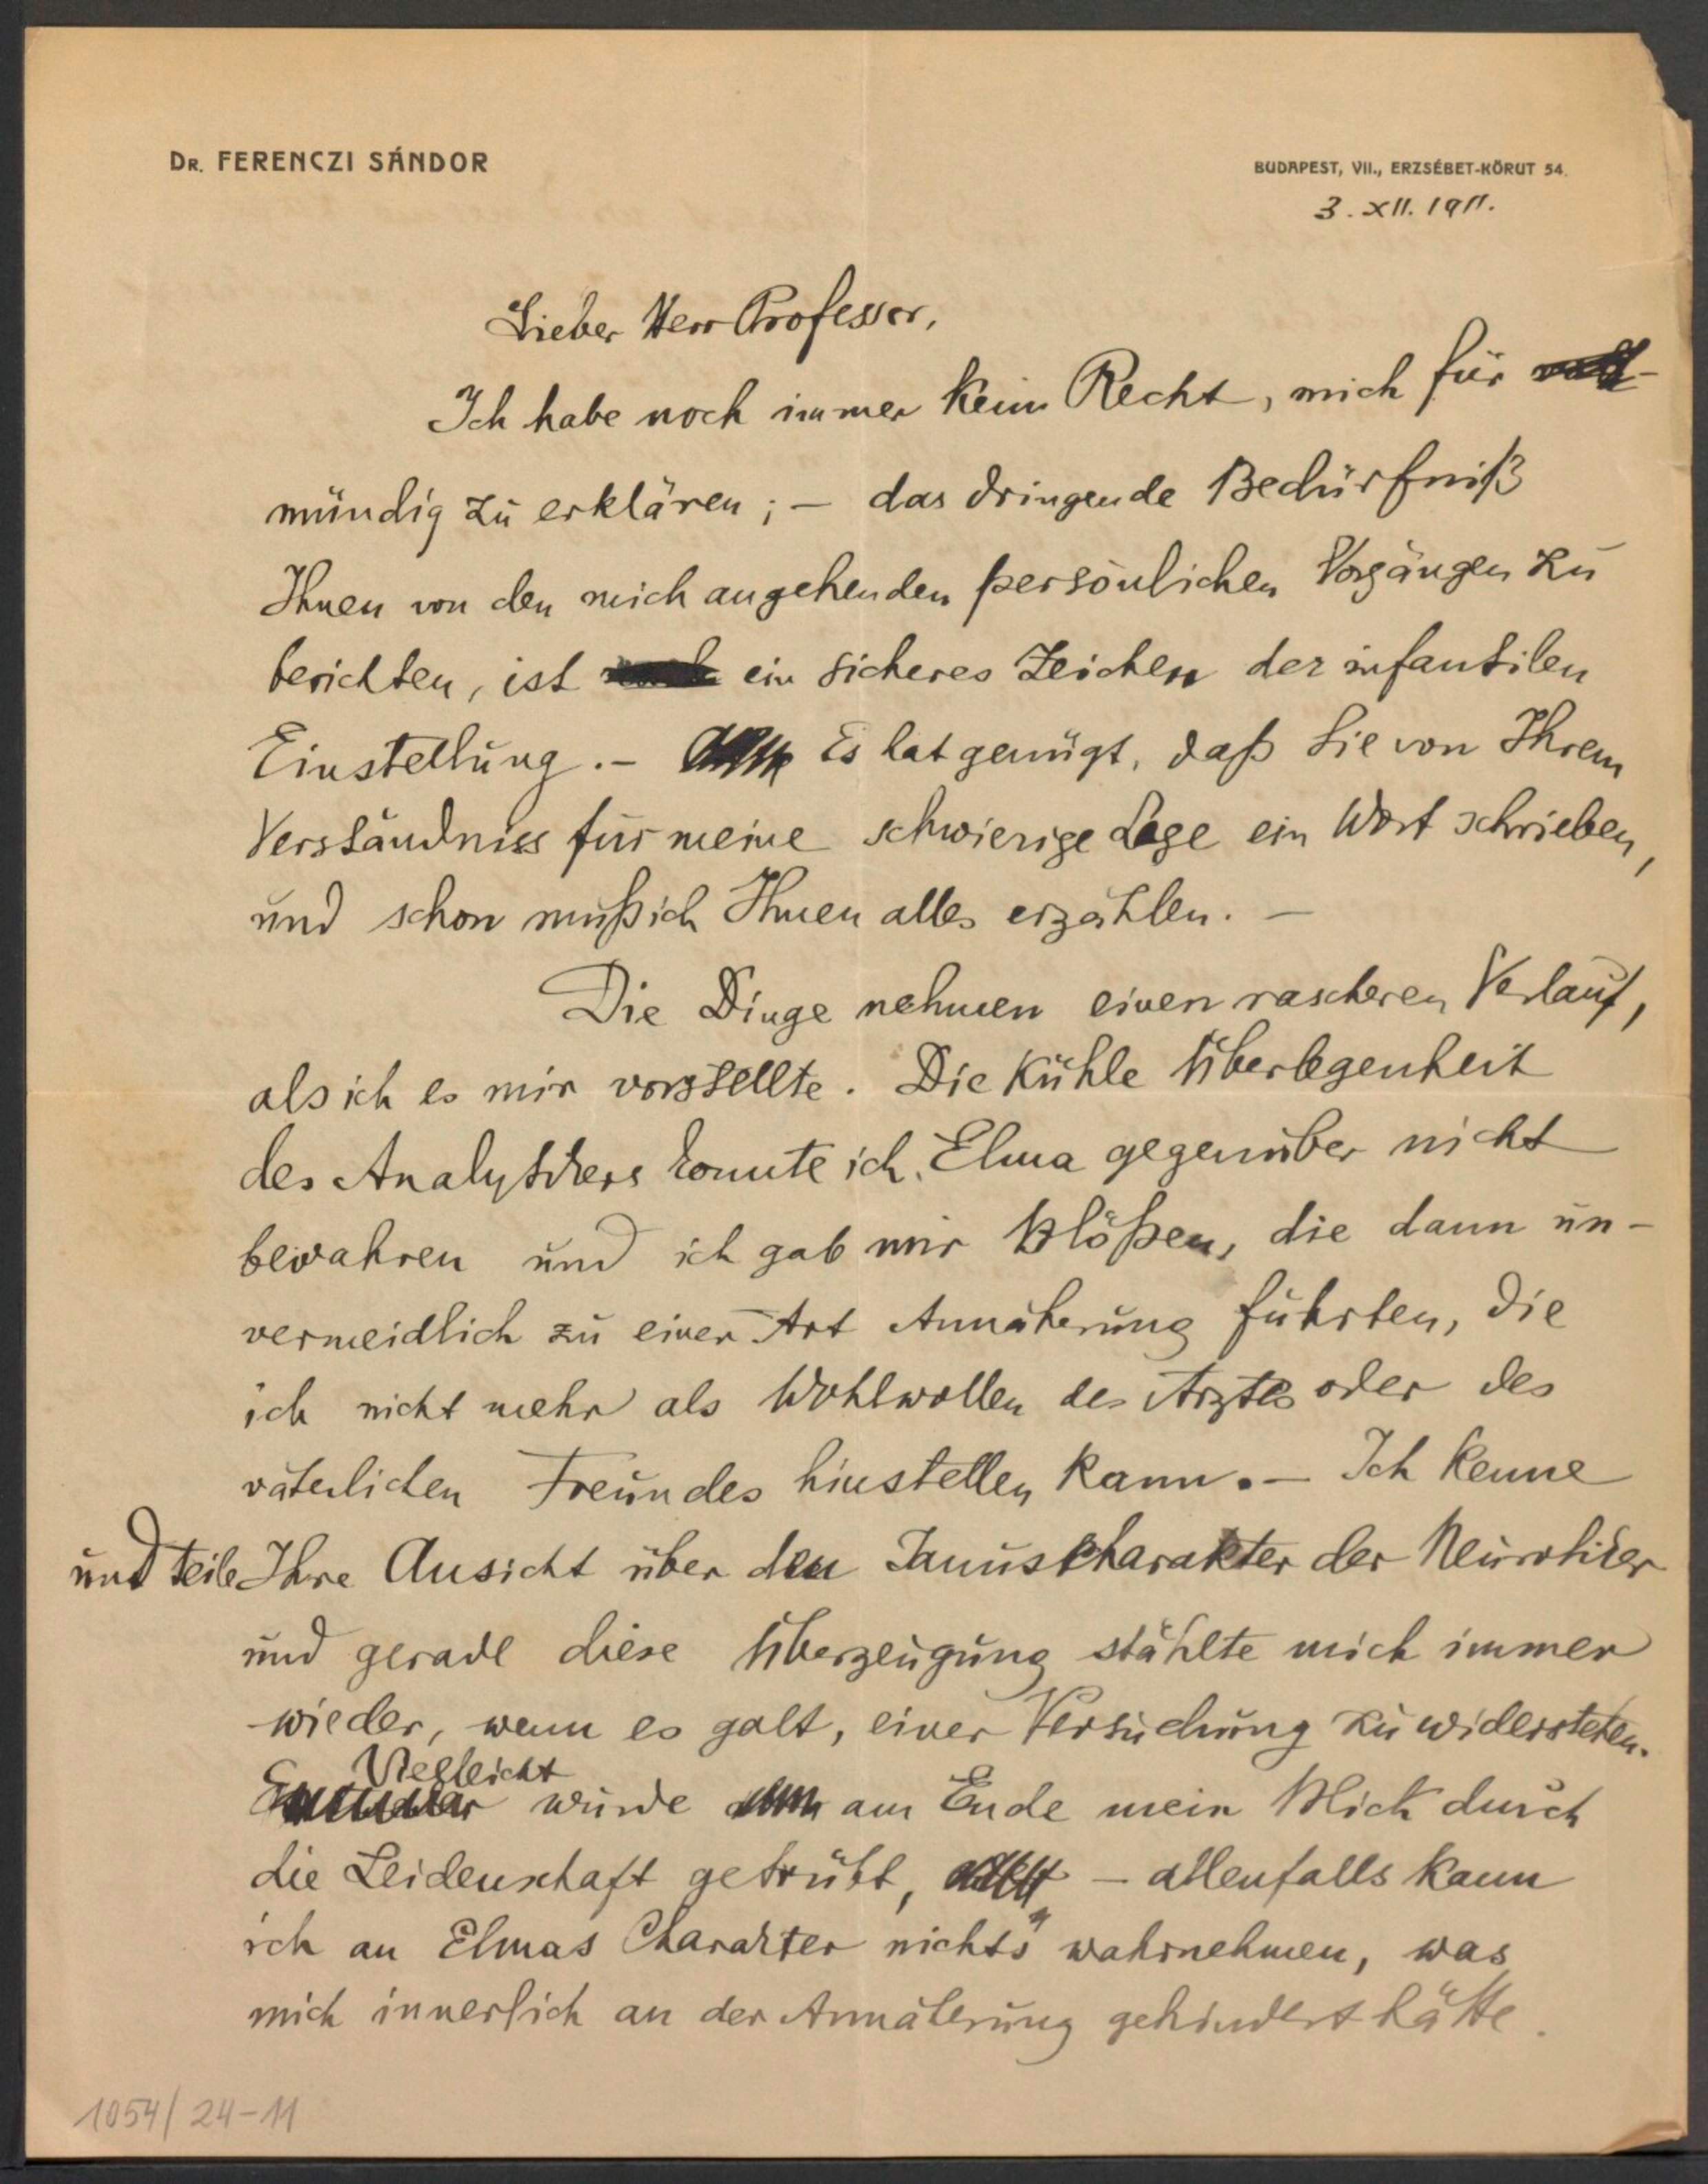 DR. FERENCZI SÁNDOR
BUDAPEST, VII., ERZSÉBET-KÖRUT 54.
3. XII. 1911.
Lieber Herr Professor,
Ich habe noch immer kein Recht, mich für
mündig zu erklären; – das dringende Bedürfniß
Ihnen von den mich angehenden persönlichen Vorgängen zu
berichten, ist ein sicheres Zeichen der infantilen
Einstellung. – Es hat genügt, daß Sie von Ihrem
Verständniss für meine schwierige Lage ein Wort schrieben,
und schon muß ich Ihnen alles erzählen. –
Die Dinge nehmen einen rascheren Verlauf,
als ich es mir vorstellte. Die kühle Überlegenheit
des Analytikers konnte ich Elma gegenüber nicht
bewahren und ich gab mir Blößen, die dann un-
vermeidlich zu einer Art Annäherung führten, die
ich nicht mehr als Wohlwollen des Arztes oder des
väterlichen Freundes hinstellen kann. – Ich kenne
und teile Ihre Ansicht über den Januscharakter der Neurotiker
und gerade diese Überzeugung stählte mich immer
wieder, wenn es galt, einer Versuchung zu widerstehen.
Vielleicht
wurde am Ende mein Blick durch
die Leidenschaft getrübt, – allenfalls kann
ich an Elmas Charakter nichts wahrnehmen, was
mich innerlich an der Annäherung gehindert hätte.
1054/24-11